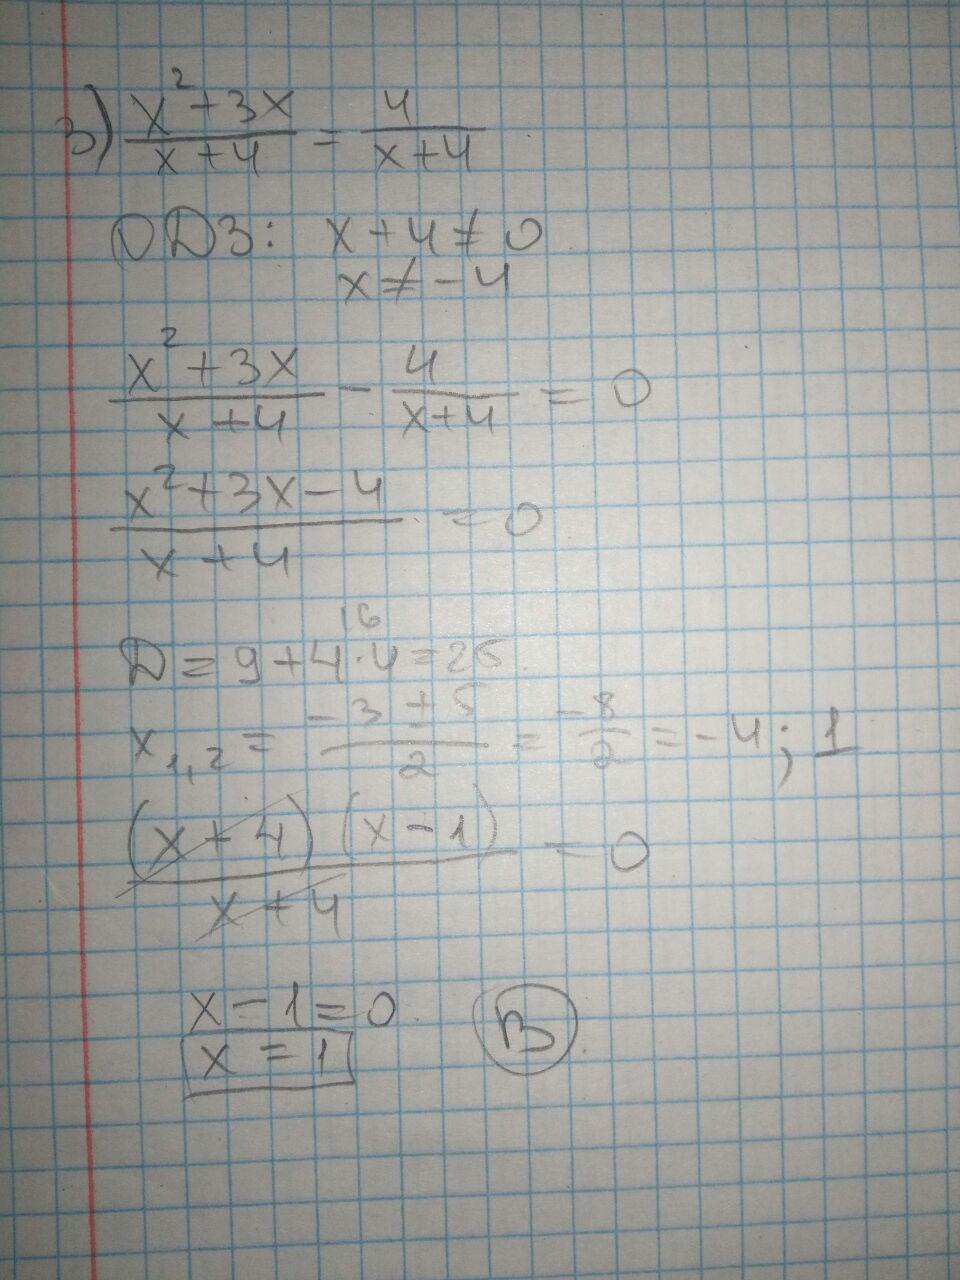 3) (x² + 3x)/(x + 4) = 4/(x + 4)
ОДЗ: x + 4 ≠ 0
x ≠ -4
(x² + 3x)/(x + 4) - 4/(x + 4) = 0
(x² + 3x - 4)/(x + 4) = 0
16
D = 9 + 4 · 4 = 25
x₁,₂ = (-3 ± 5)/2 = -8/2 = -4; 1
(x + 4)(x - 1)/(x + 4) = 0
x - 1 = 0
x = 1 В